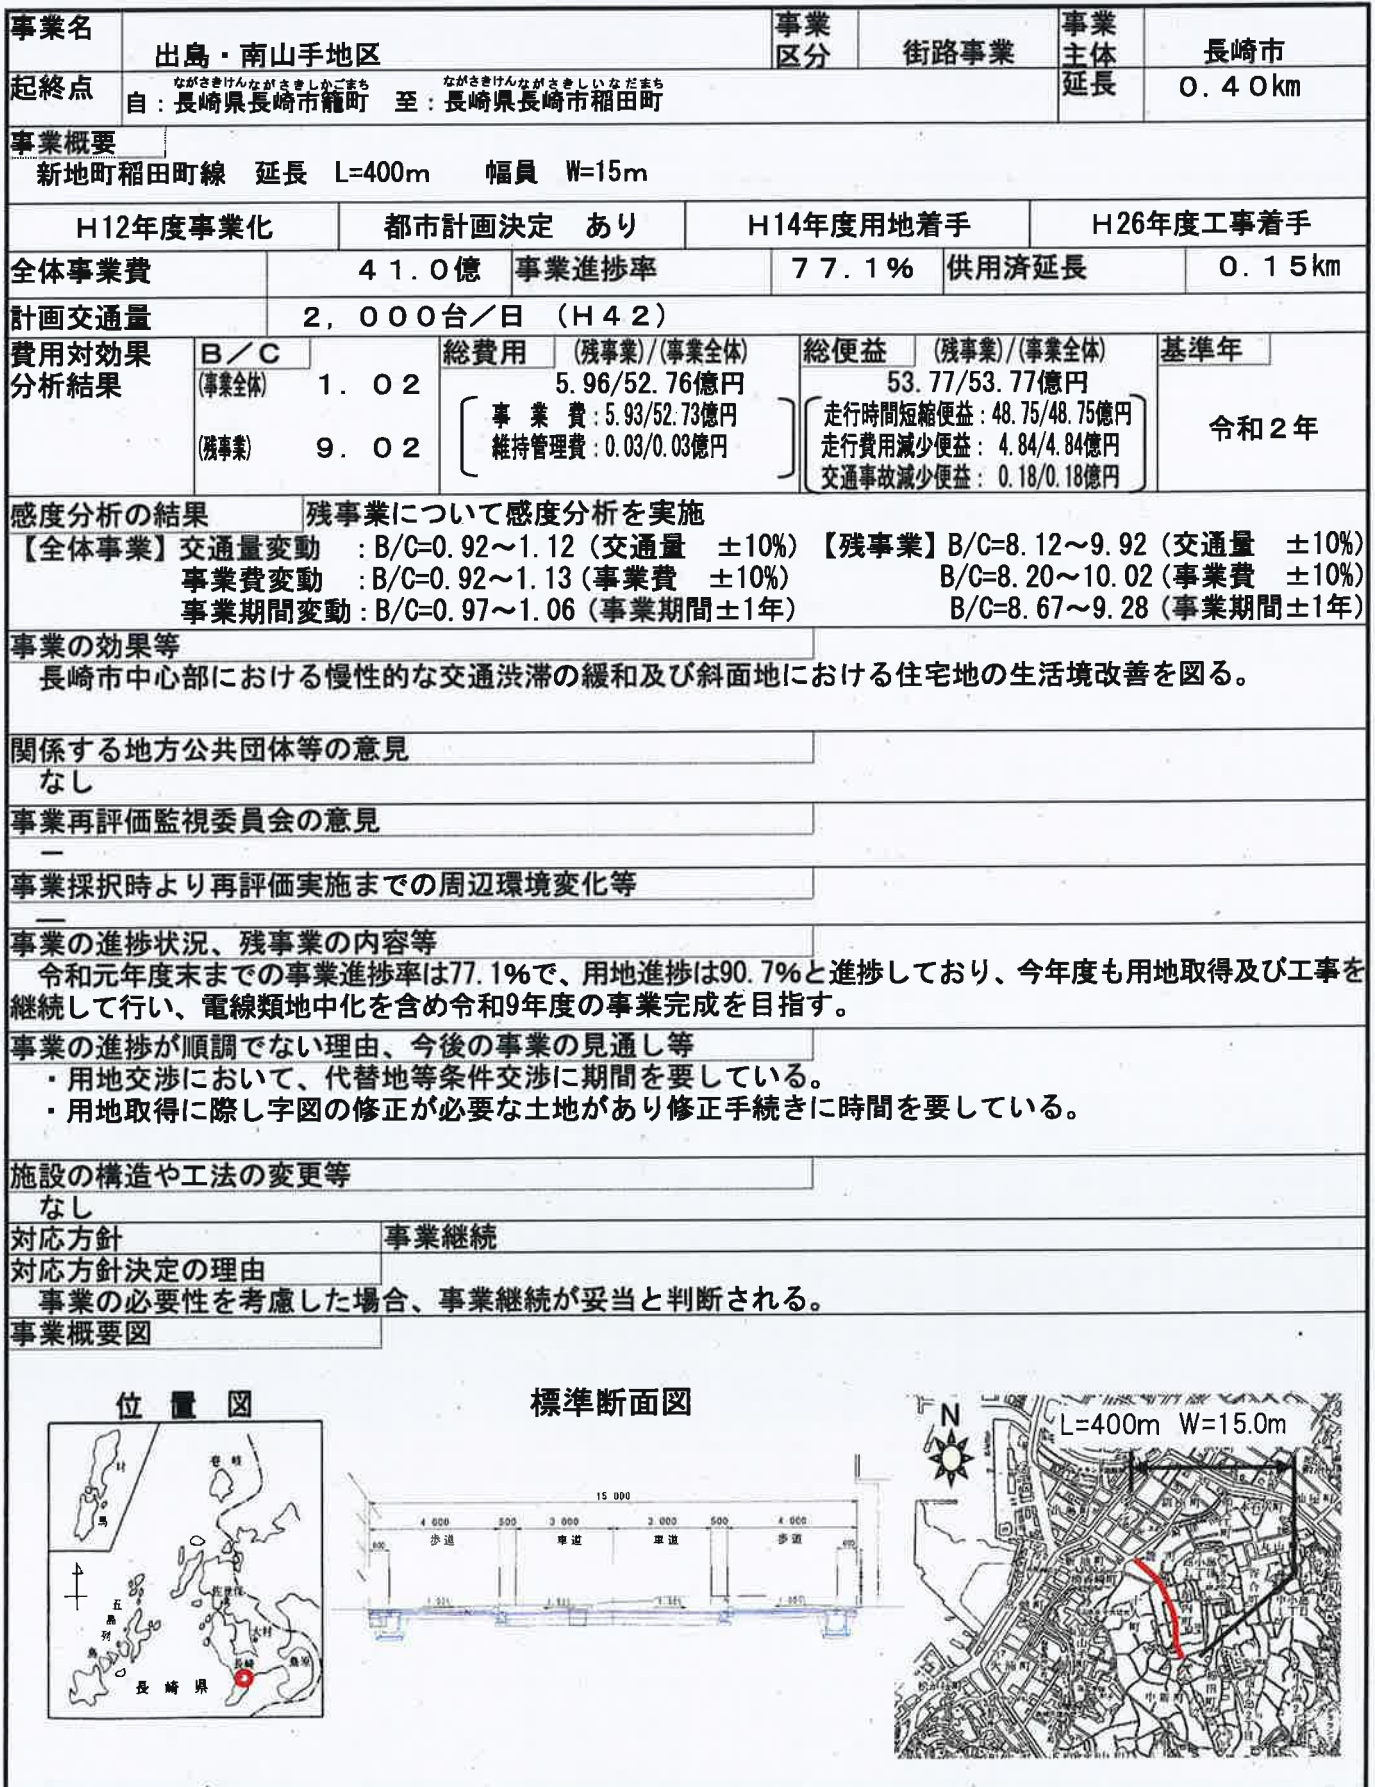 事業名
出島・南山手地区
事業
区分
街路事業
事業
主体
長崎市
起終点
ながさきけんながさきしかごまち
自：長崎県長崎市籠町
ながさきけんながさきしいなだまち
至：長崎県長崎市稲田町
延長
０．４０km
事業概要
新地町稲田町線　延長　L=400m　　幅員　W=15m
H12年度事業化
都市計画決定　あり
H14年度用地着手
H26年度工事着手
全体事業費
４１．０億
事業進捗率
７７．１％
供用済延長
０．１５km
計画交通量
２，０００台／日　（Ｈ４２）
費用対効果
分析結果
Ｂ／Ｃ
(事業全体)　１．０２
(残事業)　９．０２
総費用　(残事業)/(事業全体)
5.96/52.76億円
事　業　費：5.93/52.73億円
維持管理費：0.03/0.03億円
総便益　(残事業)/(事業全体)
53.77/53.77億円
走行時間短縮便益：48.75/48.75億円
走行費用減少便益： 4.84/4.84億円
交通事故減少便益： 0.18/0.18億円
基準年
令和２年
感度分析の結果　　　残事業について感度分析を実施
【全体事業】交通量変動　：B/C=0.92～1.12（交通量　±10%）【残事業】B/C=8.12～9.92（交通量　±10%）
事業費変動　：B/C=0.92～1.13（事業費　±10%）　　B/C=8.20～10.02（事業費　±10%）
事業期間変動：B/C=0.97～1.06（事業期間±1年）　　B/C=8.67～9.28（事業期間±1年）
事業の効果等
長崎市中心部における慢性的な交通渋滞の緩和及び斜面地における住宅地の生活境改善を図る。
関係する地方公共団体等の意見
なし
事業再評価監視委員会の意見
―
事業採択時より再評価実施までの周辺環境変化等
―
事業の進捗状況、残事業の内容等
令和元年度末までの事業進捗率は77.1%で、用地進捗は90.7%と進捗しており、今年度も用地取得及び工事を
継続して行い、電線類地中化を含め令和9年度の事業完成を目指す。
事業の進捗が順調でない理由、今後の事業の見通し等
・用地交渉において、代替地等条件交渉に期間を要している。
・用地取得に際し字図の修正が必要な土地があり修正手続きに時間を要している。
施設の構造や工法の変更等
なし
対応方針
事業継続
対応方針決定の理由
事業の必要性を考慮した場合、事業継続が妥当と判断される。
事業概要図
位　置　図
対
馬
壱　岐
佐世保
五
島
列
島
大村
長崎
島原
長　崎　県
標準断面図
15 000
4 000
500
3 000
3 000
500
4 000
歩道
車道
車道
歩道
600
600
N
L=400m　W=15.0m